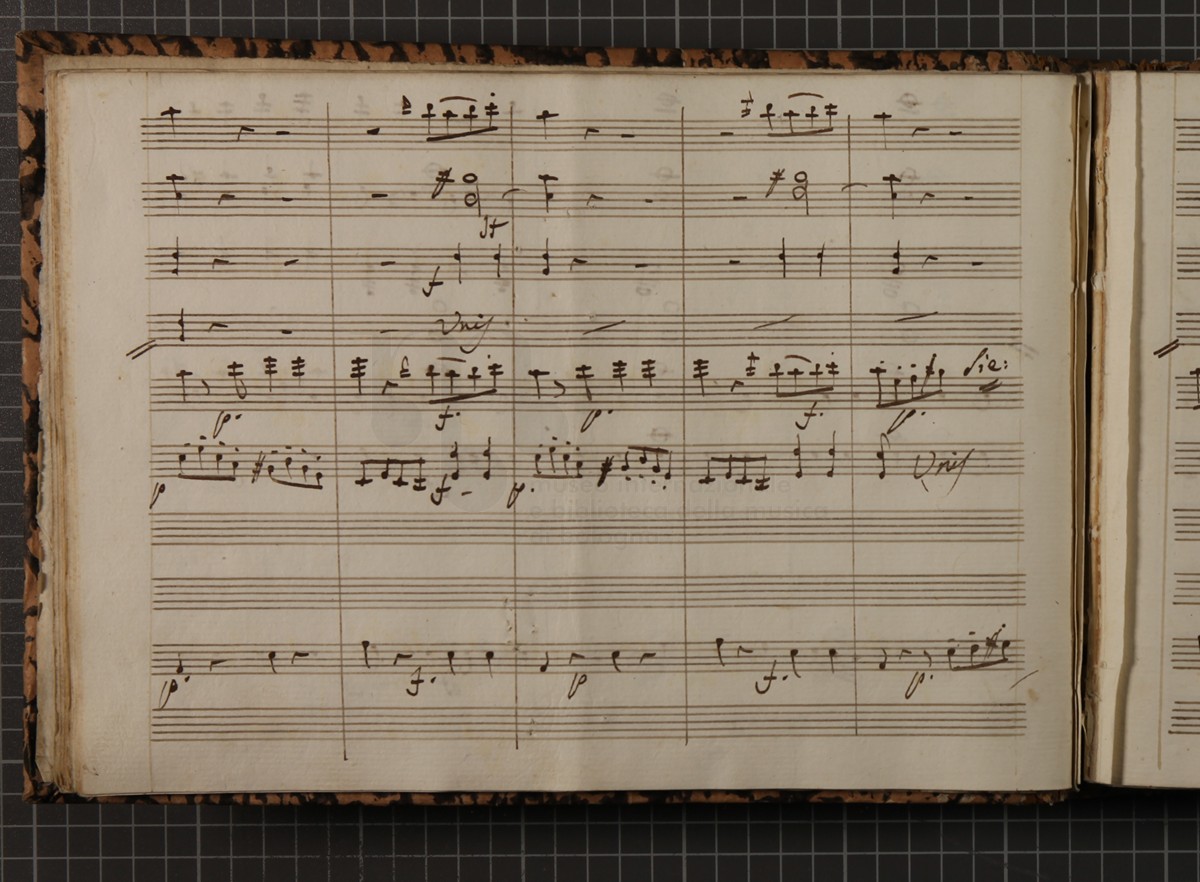 f
Unis
p. f. p. f. p. Sie:
p f p. Unis
museo internazionale
e biblioteca della musica
di bologna
p. f. p f. p.